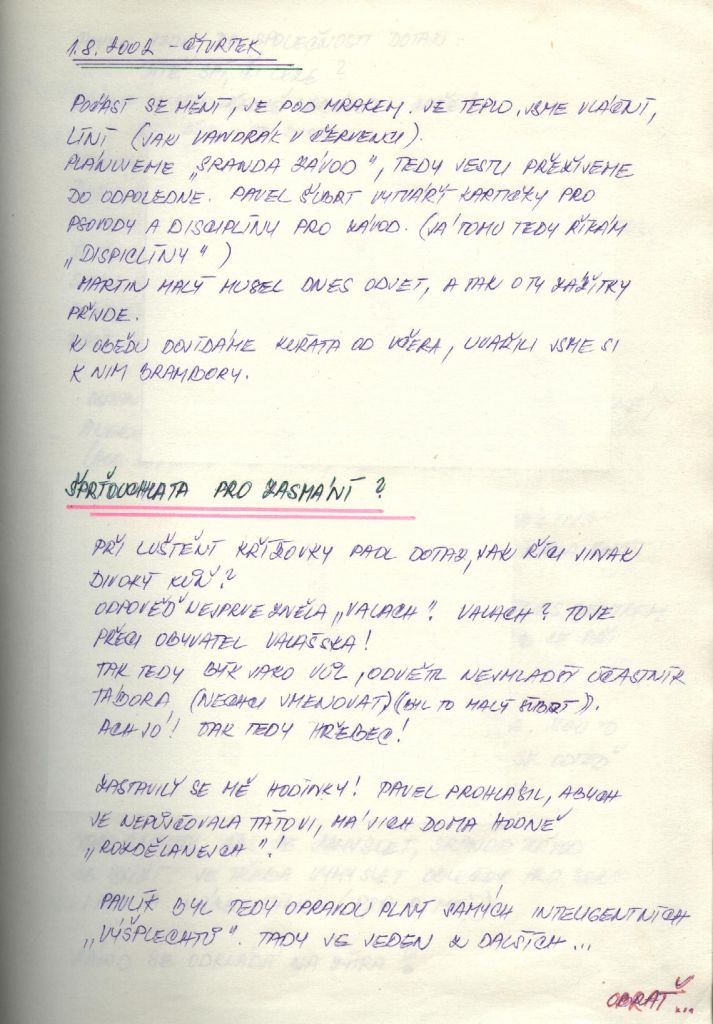 1.8.2002 - ČTVRTEK
POČASÍ SE MĚNÍ, JE POD MRAKEM. JE TEPLO, JSME VLÁČNÍ,
LÍNÍ (JAK VANDRÁK V ČERVENCI).
PLÁNUJEME „SRANDA ZÁVOD", TEDY JESTLI PŘEŽIJEME
DO ODPOLEDNE. PAVEL ŠUBRT VYTVÁŘÍ KARTIČKY PRO
PSOVODY A DISCIPLÍNY PRO ZÁVOD. (JÁ TOMU TEDY ŘÍKÁM
„DISPICLÍNY")
MARTIN MALÝ MUSEL DNES ODJET, A TAK O TY ZÁŽITKY
PŘIJDE.
K OBĚDU DOJÍDÁME KUŘATA OD VČERA, UVAŘILI JSME SI
K NIM BRAMBORY.
ŠPRŤOUCHLATA PRO ZASMÁNÍ?
PŘI LUŠTĚNÍ KŘÍŽOVKY PADL DOTAZ, JAK ŘÍCI JINAK
DIVOKÝ KŮŇ?
ODPOVĚĎ NEJPRVE ZNĚLA „VALACH". VALACH? TO JE
PŘECI OBYVATEL VALAŠSKA!
TAK TEDY BÝK JAKO VŮL, ODVĚTIL NEJMLADŠÍ ÚČASTNÍK
TÁBORA (NECHCI JMENOVAT) (BYL TO MALÝ ŠUBRT).
ACH JO! TAK TEDY HŘEBEC!
ZASTAVILY SE MĚ HODINKY! PAVEL PROHLÁSIL, ABYCH
JE NEPŮJČOVALA TÁTOVI, MÁ JICH DOMA HODNĚ
„ROZDĚLANEJCH"!
PAVLÍK BYL TEDY OPRAVDU PLNÝ SAMÝCH INTELIGENTNÍCH
„VÝŠPLECHTŮ". TADY JE JEDEN Z DALŠÍCH...
OBRAŤ...